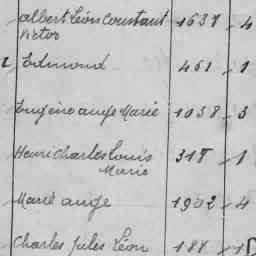 Albert Léon Constant 1637 4
Victor
Edmond 451 1
Eugène ange Marie 1038 3
Henri Charles Louis 317 1
Marie
Marie ange 1902 4
Charles Jules Léon 187